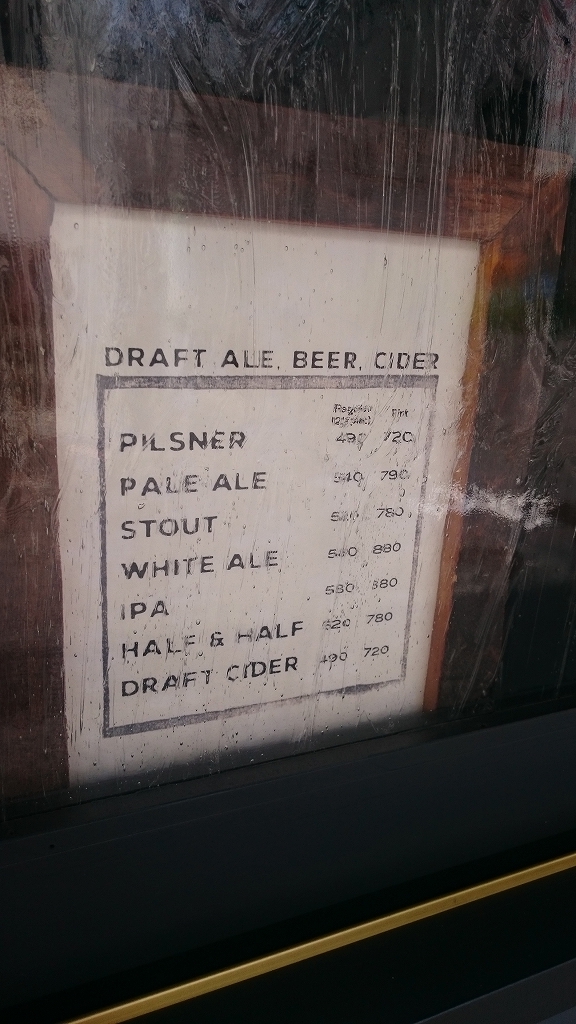 DRAFT ALE, BEER, CIDER
Regular Pint
PILSNER 490 720
PALE ALE 540 790
STOUT 780
WHITE ALE 580 880
IPA 580 880
HALF & HALF 520 780
DRAFT CIDER 490 720